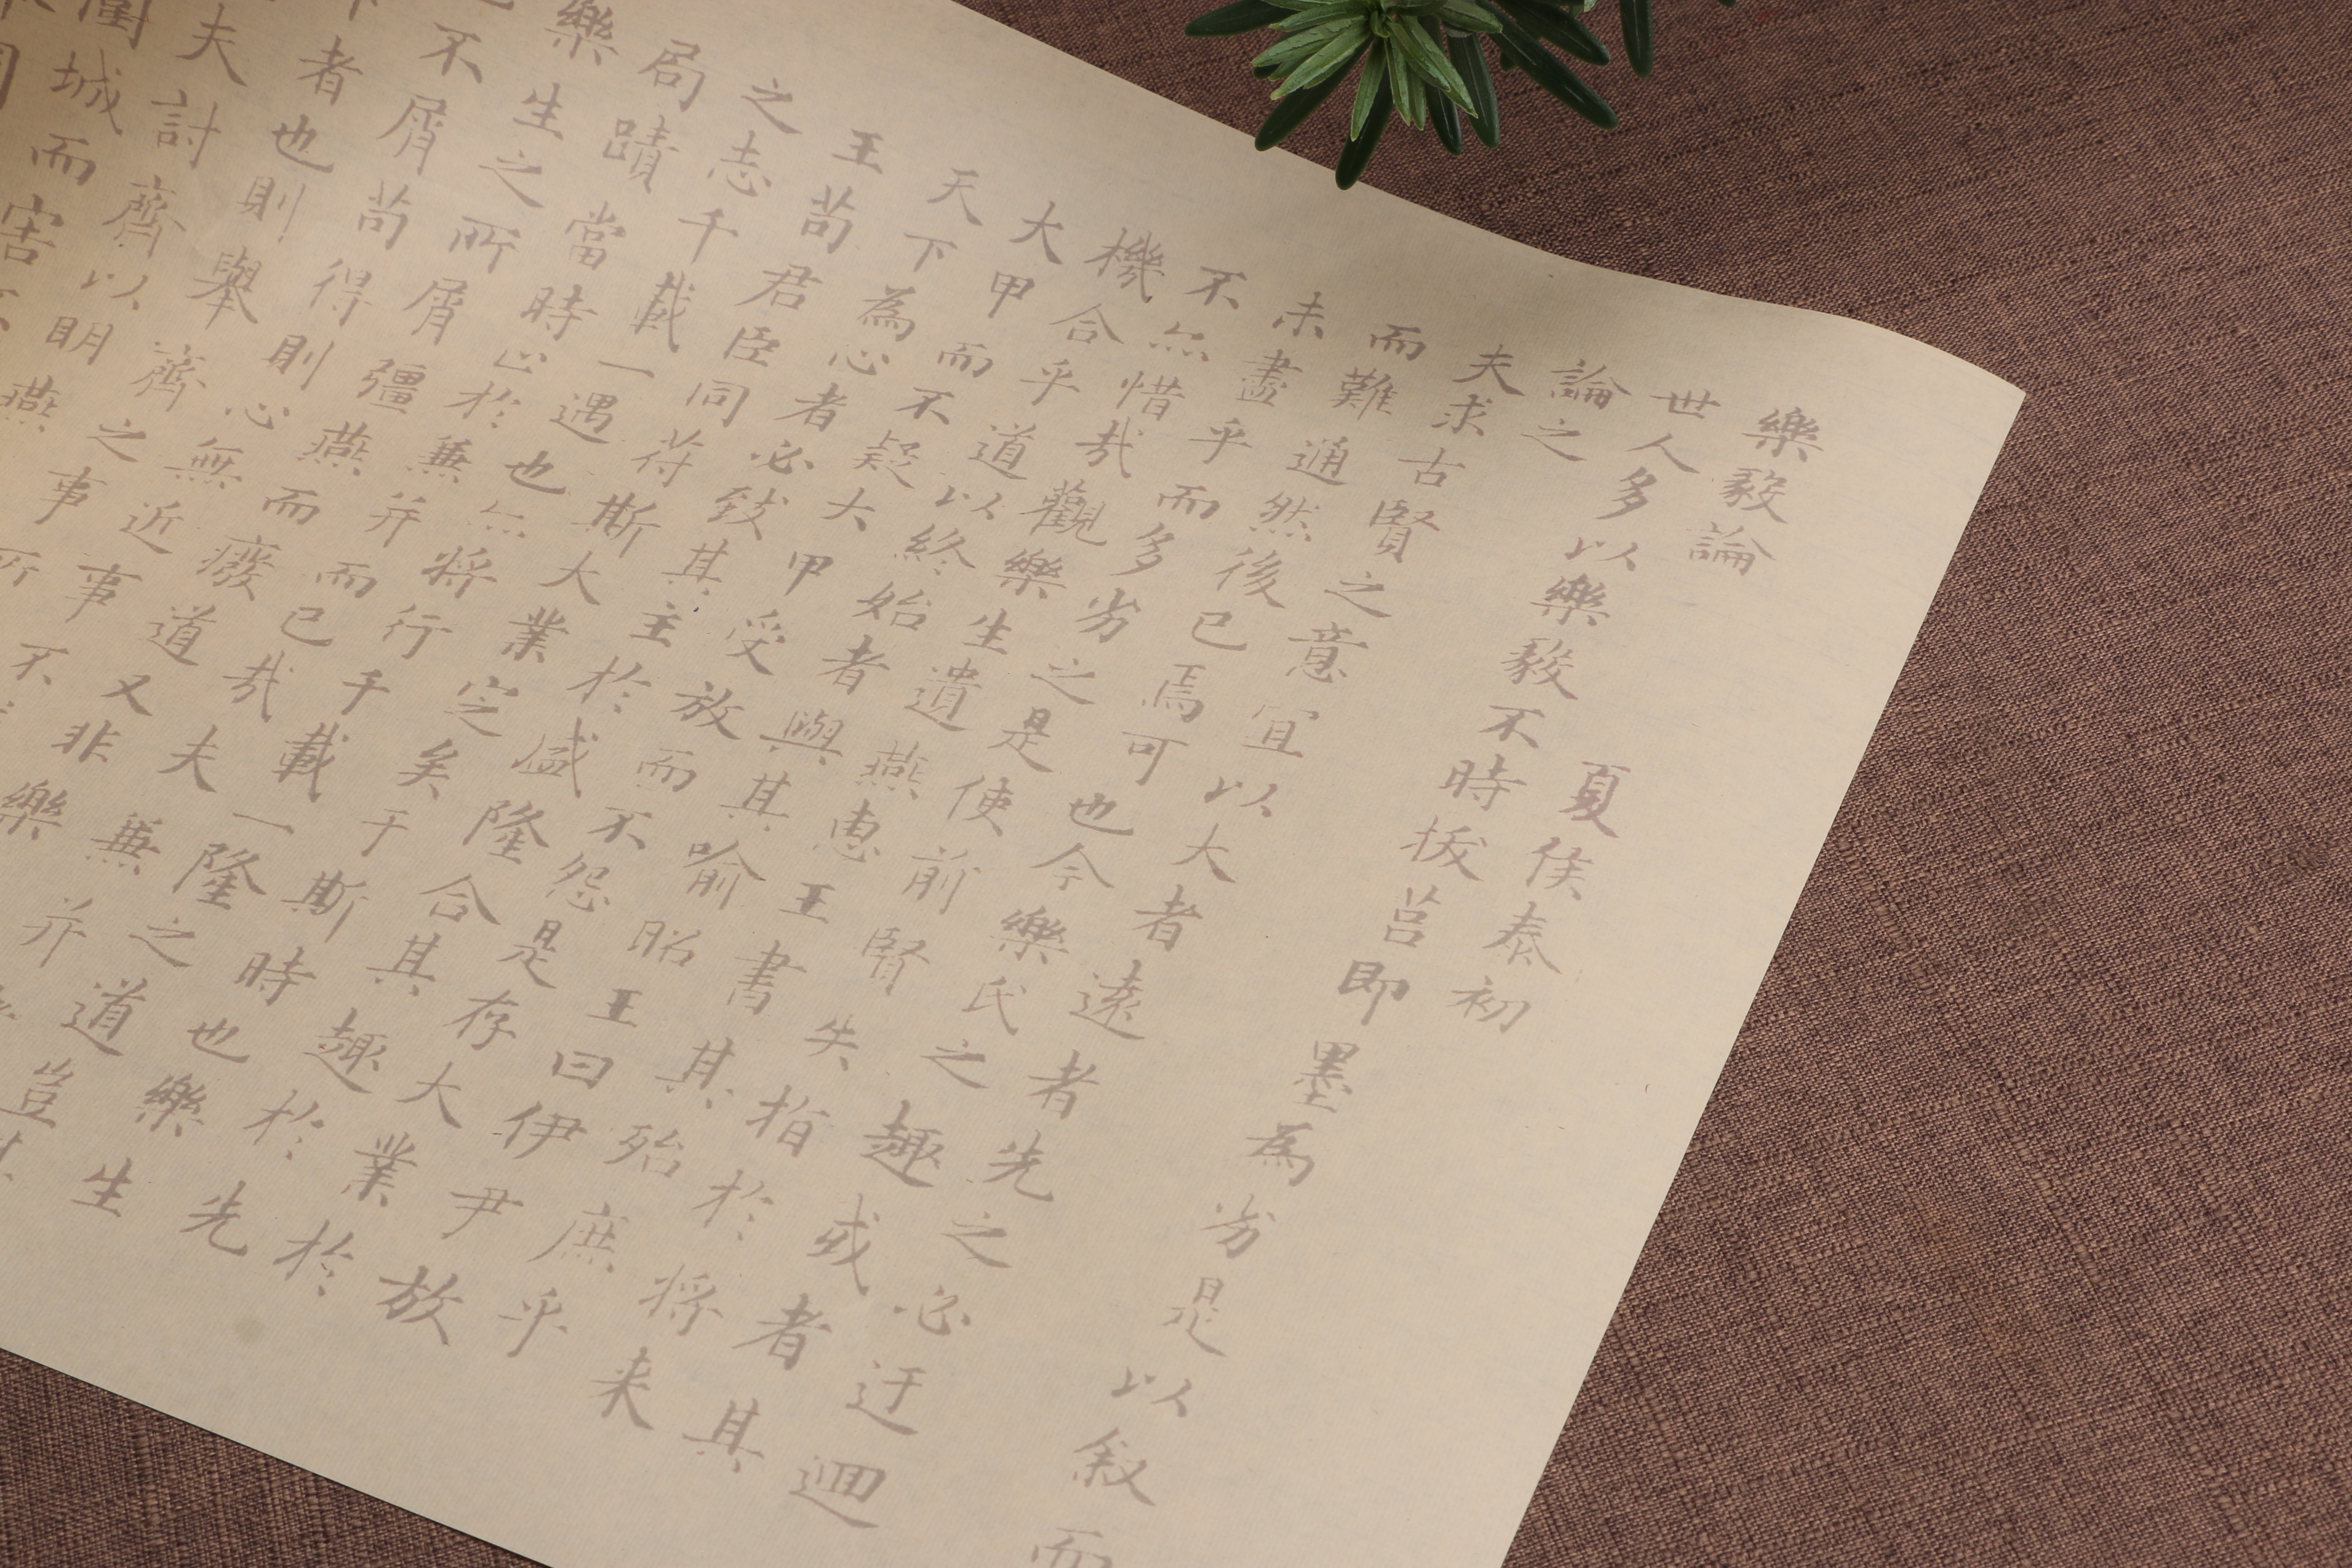 樂毅論 夏侯泰初
世人多以樂毅不時拔莒即墨為劣是以叙而
論之
夫求古賢之意宜以大者遠者先之必迂迴
而難通然後已焉可也今樂氏之趣或者其
未盡乎而多劣之是使前賢失指於将来
不亦惜哉觀樂生遺燕惠王書其殆庶乎
機合乎道以終始者與其喻昭王曰伊尹放
大甲而不疑大甲受放而不怨是存大業於
天下為心者必致其主於盛隆合其趣於先
王苟君臣同符斯大業定矣于斯時也樂生
之志千載一遇也亦将行千載一隆之道豈其
局蹟當時止於兼并而已哉夫兼并
樂生之所屑彊燕而廢道又非樂
不屑苟得則心無近事不
者也則舉齊之事所
夫討齊以明燕
圍城而害不